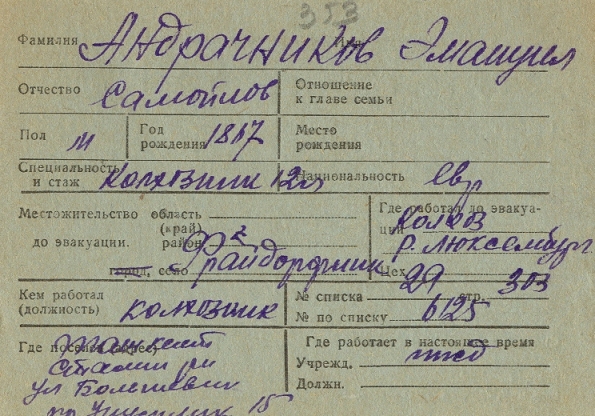 353
Фамилия Андрачников Эмануил
Отчество Самойлов Отношение
к главе семьи
Пол м Год
рождения 1867 Место
рождения
Специальность
и стаж колхозник 12л Национальность Евр
Местожительство область
(край)
до эвакуации. район
город, село Фрайдорфский
Где работал до эвакуа-
ции колхоз
Р. Люксембург
Цех
Кем работал
(должность) колхозник
№ списка 29 стр. 303
№ по списку 6125
Где поселен (адрес)
Стахнт
ул Большевик
15
Где работает в настоящее время
Учрежд. ижд
Должн.